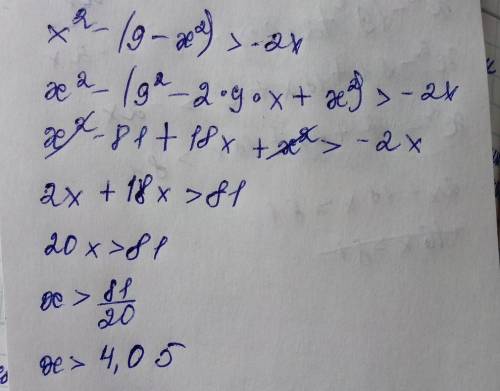 x² - (9 - x²) > -2x
x² - (9² - 2·9·x + x²) > -2x
x² - 81 + 18x + x² > -2x
2x + 18x > 81
20x > 81
x > 81/20
x > 4,05